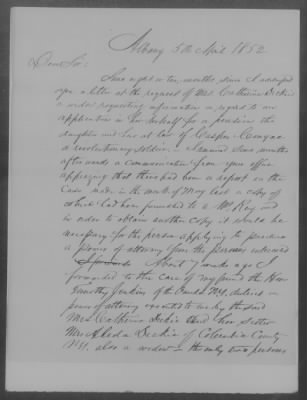 Albany 5th April 1852
Dear Sir:
Some eight or ten months since I addressed
you a letter at the request of Mrs Catharine
a widow requesting information in regard to an
application in her behalf for a pension the
daughter and heir at law of Casper
a revolutionary soldier. I received some months
afterwards a communication from your office
apprizing that there had been a report on the
case made in the month of May last a copy
of which had been furnished to a Mr King and
in order to obtain another copy it would be
necessary for the person applying to produce
a power of attorney from the persons interested
About 7 weeks ago I
forwarded to the care of my friend the Hon
Timothy Jenkins of the Oneida NY, district a
power of attorney executed to me by the said
Mrs Catharine and her sister
Mrs of Columbia County
NY, also a widow - the only two persons